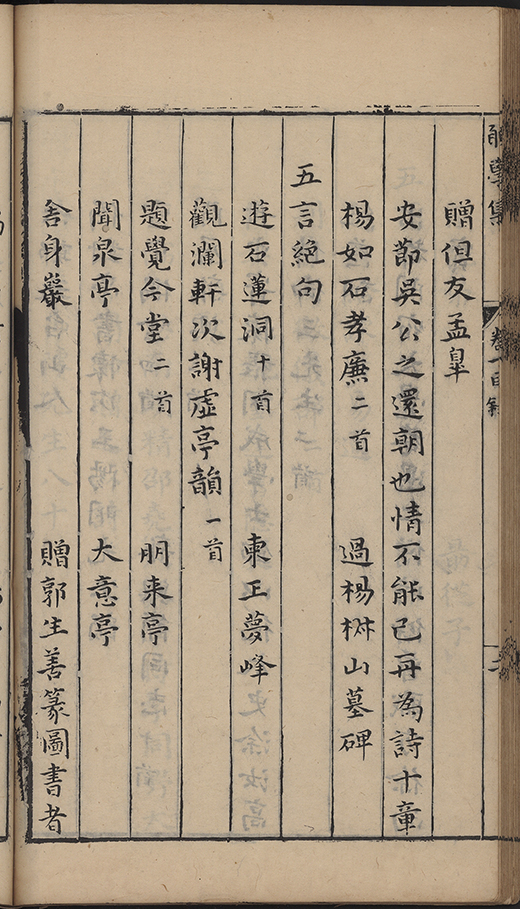 贈但友孟皐
安節吳公之還朝也情不能已再為詩十章
楊如石孝廉二首 過楊樹山墓碑
五言絶句
遊石蓮洞十首 東王夢峰
觀瀾軒次謝虛亭韻一首
題覺今堂二首 朋来亭
聞泉亭 大意亭
舍身巖 贈郭生善篆圖書者